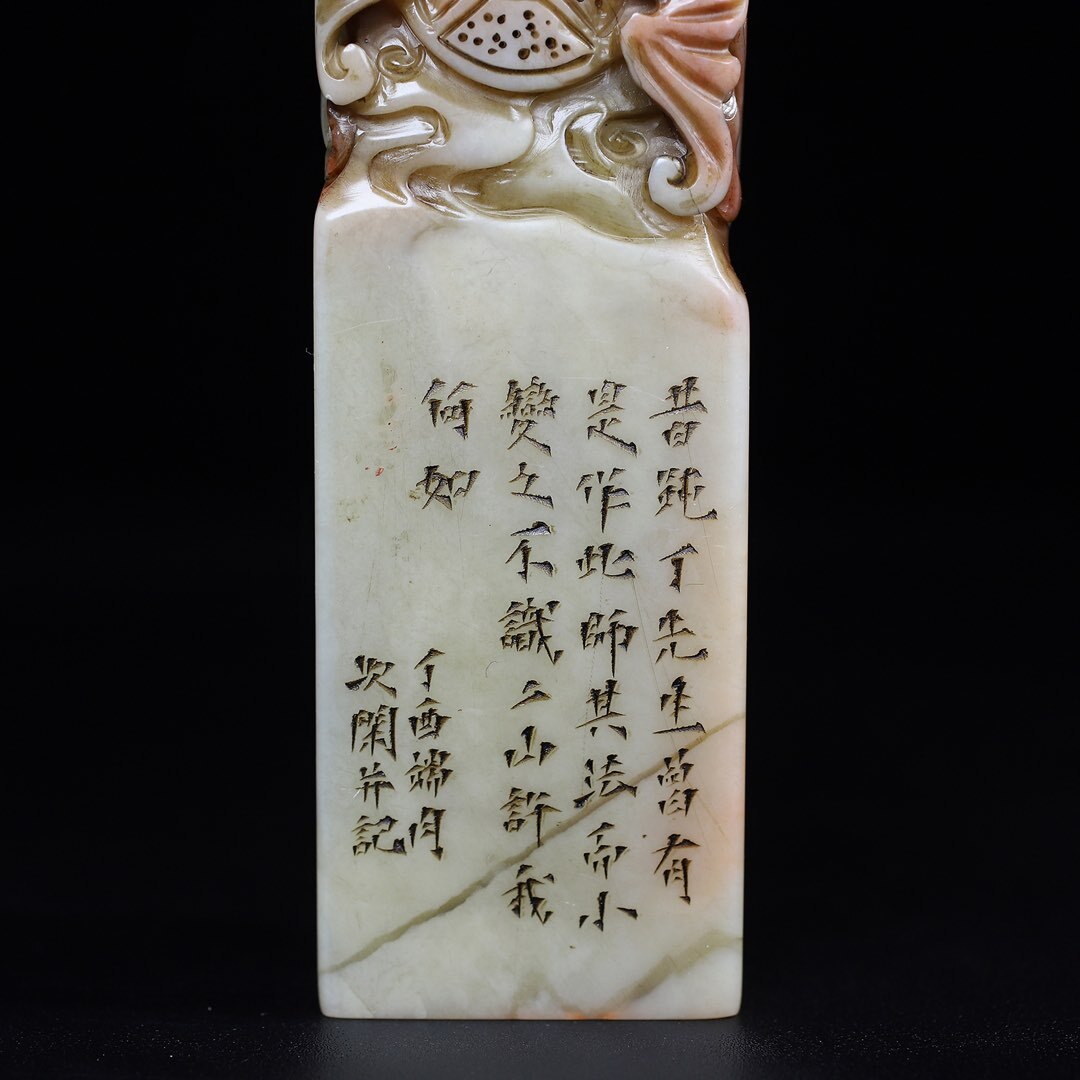 昔鈍丁先生曾有
是作此師其法而小
變之不識二山許我
何如
丁酉端月
次閑并記